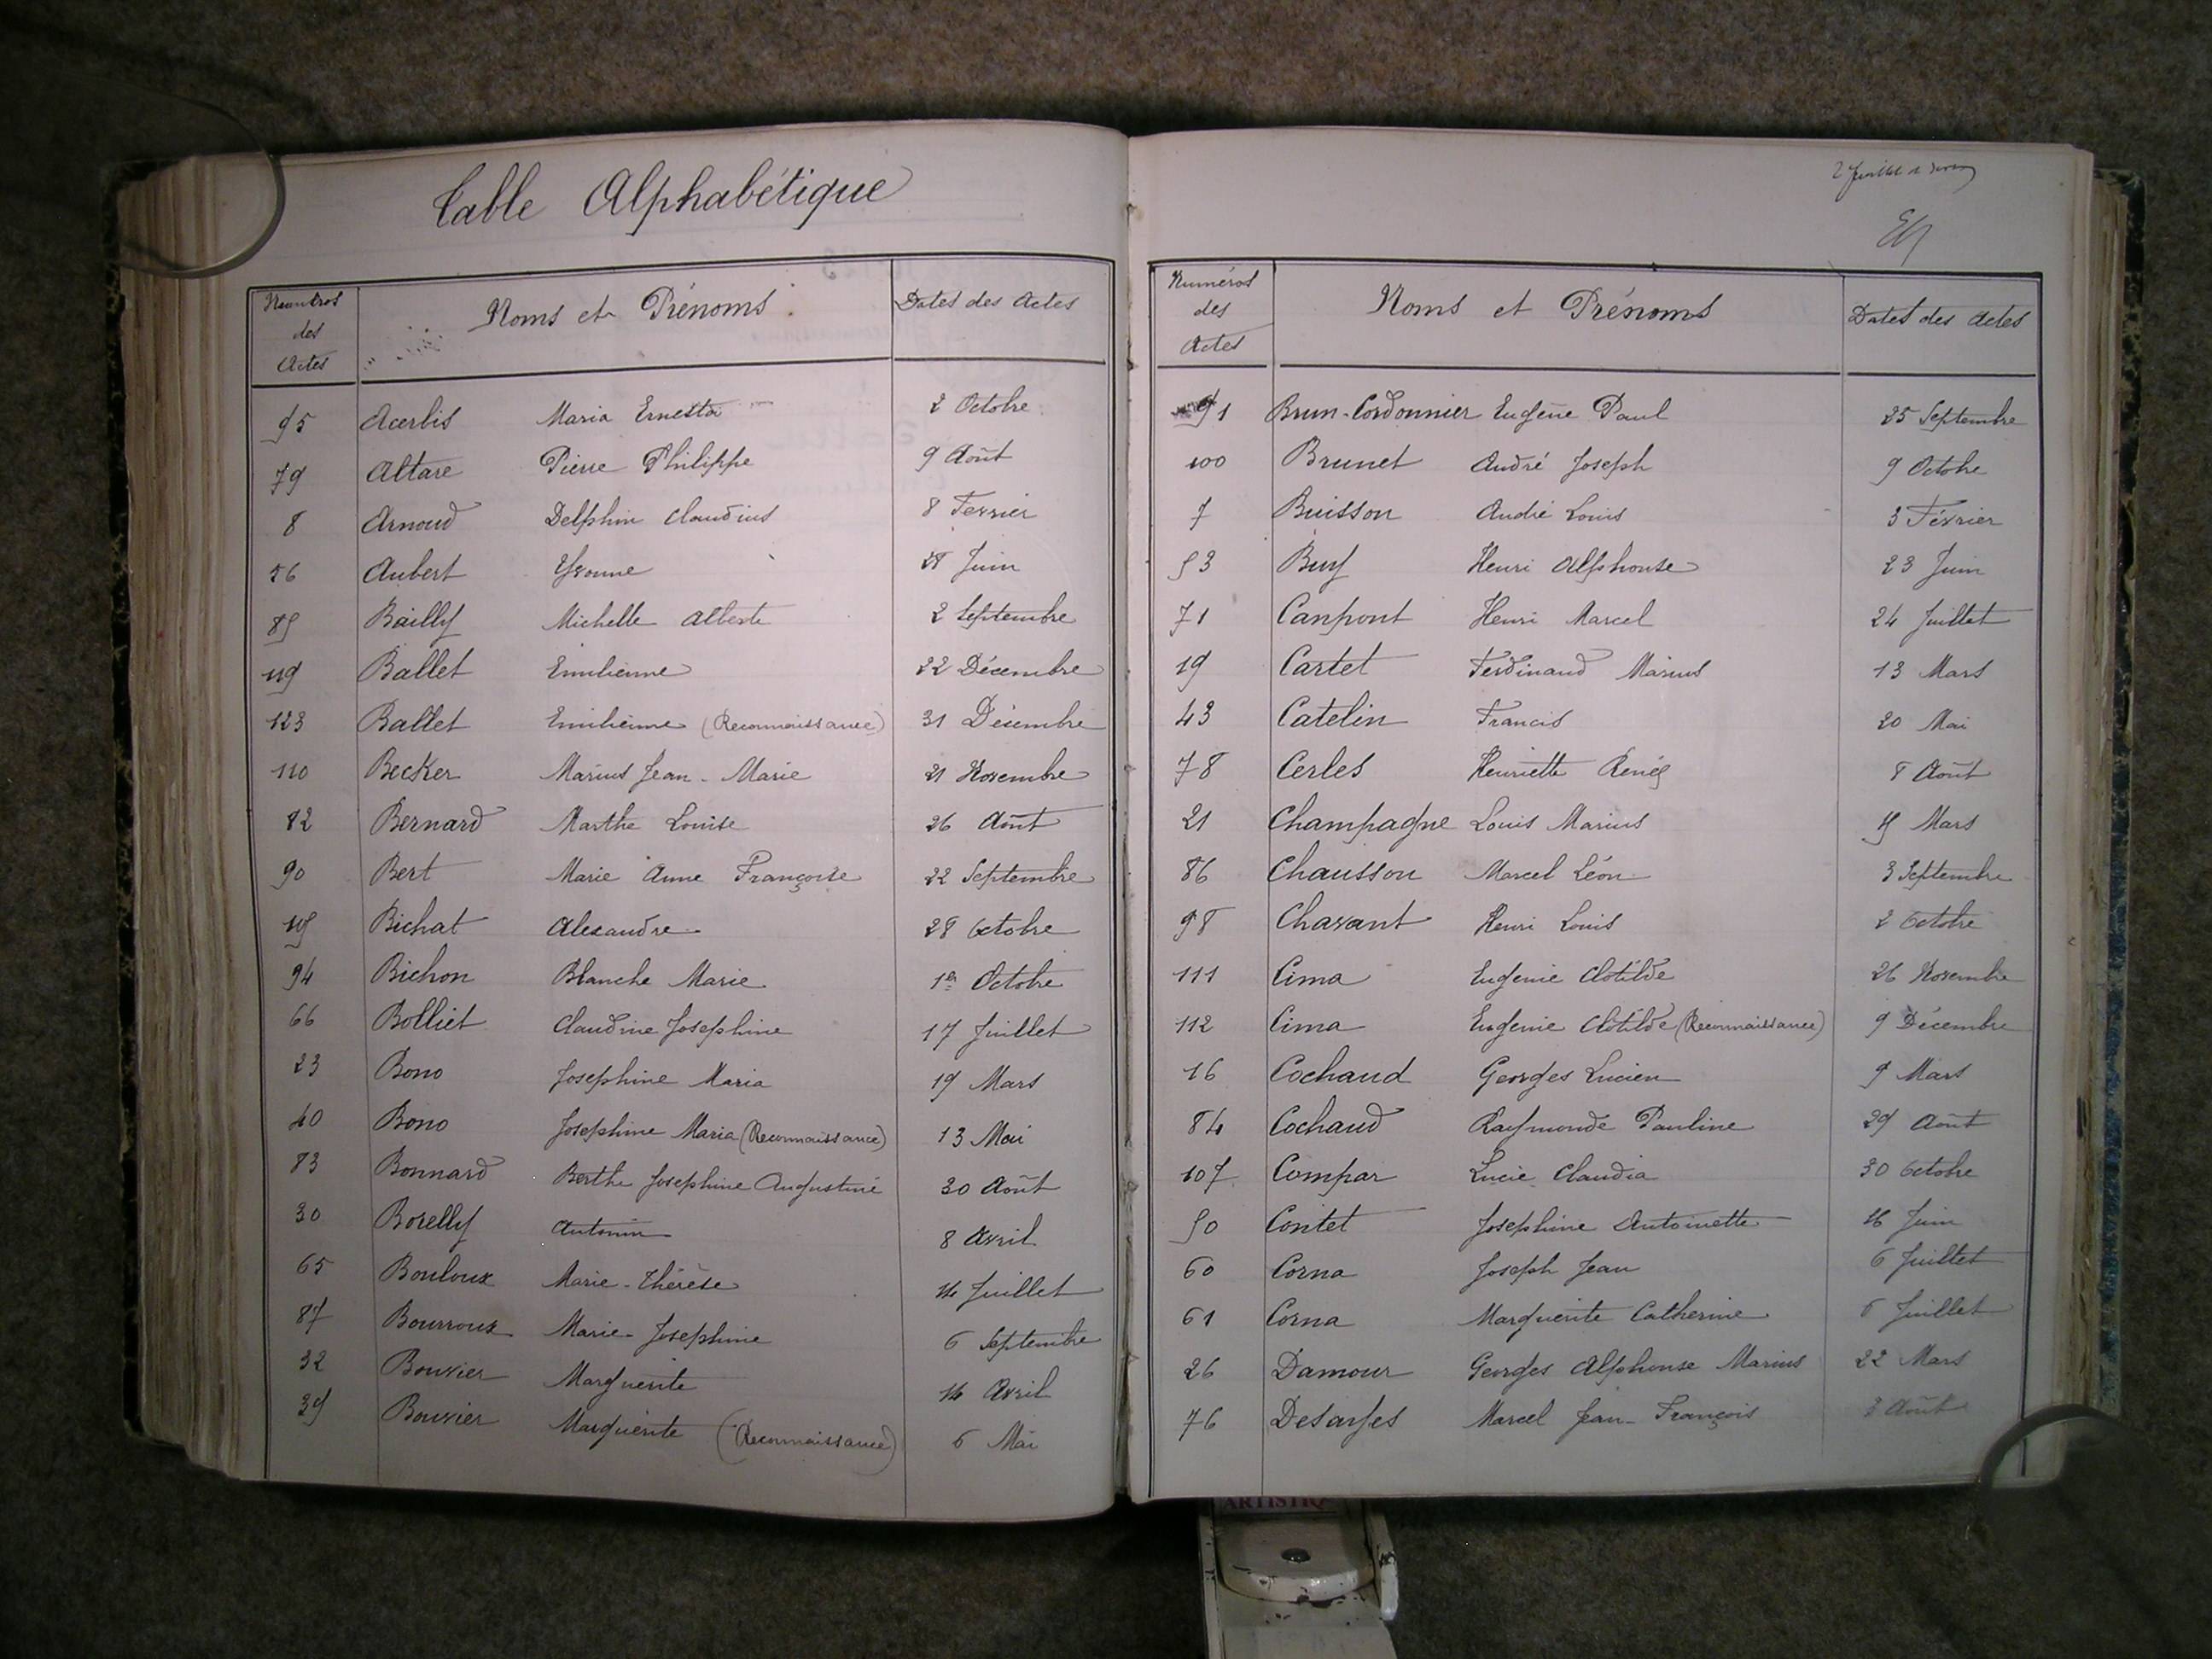 Table Alphabétique
Numéros des Actes Noms et Prénoms Dates des Actes
95 Acerbis Maria Ernesta 2 Octobre
79 Altare Pierre Philippe 9 Août
8 Arnoud Delphin Claudius 8 Fevrier
56 Aubert Yvonne 28 Juin
85 Bailly Michelle Alberte 2 Septembre
119 Ballet Emilienne 22 Décembre
123 Ballet Emilienne (Reconnaissance) 31 Décembre
110 Becker Marius Jean-Marie 21 Novembre
82 Bernard Marthe Louise 26 Août
90 Bert Marie Anne Françoise 22 Septembre
Bichat Alexandre 28 Octobre
94 Bichon Blanche Marie 1er Octobre
66 Bolliet Claudine Josephine 17 Juillet
23 Bono Josephine Maria 19 Mars
40 Bono Josephine Maria (Reconnaissance) 13 Mai
83 Bonnard Berthe Josephine Augustine 30 Août
30 Borelly Antonin 8 Avril
65 Bouloux Marie-Thérèse 14 Juillet
87 Bourroux Marie-Josephine 6 Septembre
32 Bouvier Marguerite 14 Avril
39 Bouvier Marguerite (Reconnaissance) 6 Mai
2
Numéros des Actes Noms et Prénoms Dates des Actes
91 Brun-Cordonnier Eugène Paul 25 Septembre
100 Brunet André Joseph 9 Octobre
7 Buisson André Louis 3 Février
53 Buy Henri Alphonse 23 Juin
71 Canpont Henri Marcel 24 Juillet
19 Cartet Ferdinand Marius 13 Mars
43 Catelin Francis 20 Mai
78 Cerles Henriette Renée 8 Août
21 Champagne Louis Marius Mars
86 Chausson Marcel Léon 3 Septembre
98 Chavant Henri Louis 2 Octobre
111 Cima Eugenie Clotilde 26 Novembre
112 Cima Eugenie Clotilde (Reconnaissance) 9 Décembre
16 Cochaud Georges Lucien 9 Mars
84 Cochaud Raymonde Pauline 29 Août
107 Compar Lucie Claudia 30 Octobre
50 Contet Josephine Antoinette 16 Juin
60 Corna Joseph Jean 6 Juillet
61 Corna Marguerite Catherine 6 Juillet
26 Damour Georges Alphonse Marius 22 Mars
76 Desayes Marcel Jean-François 3 Août
ARTISTIQ